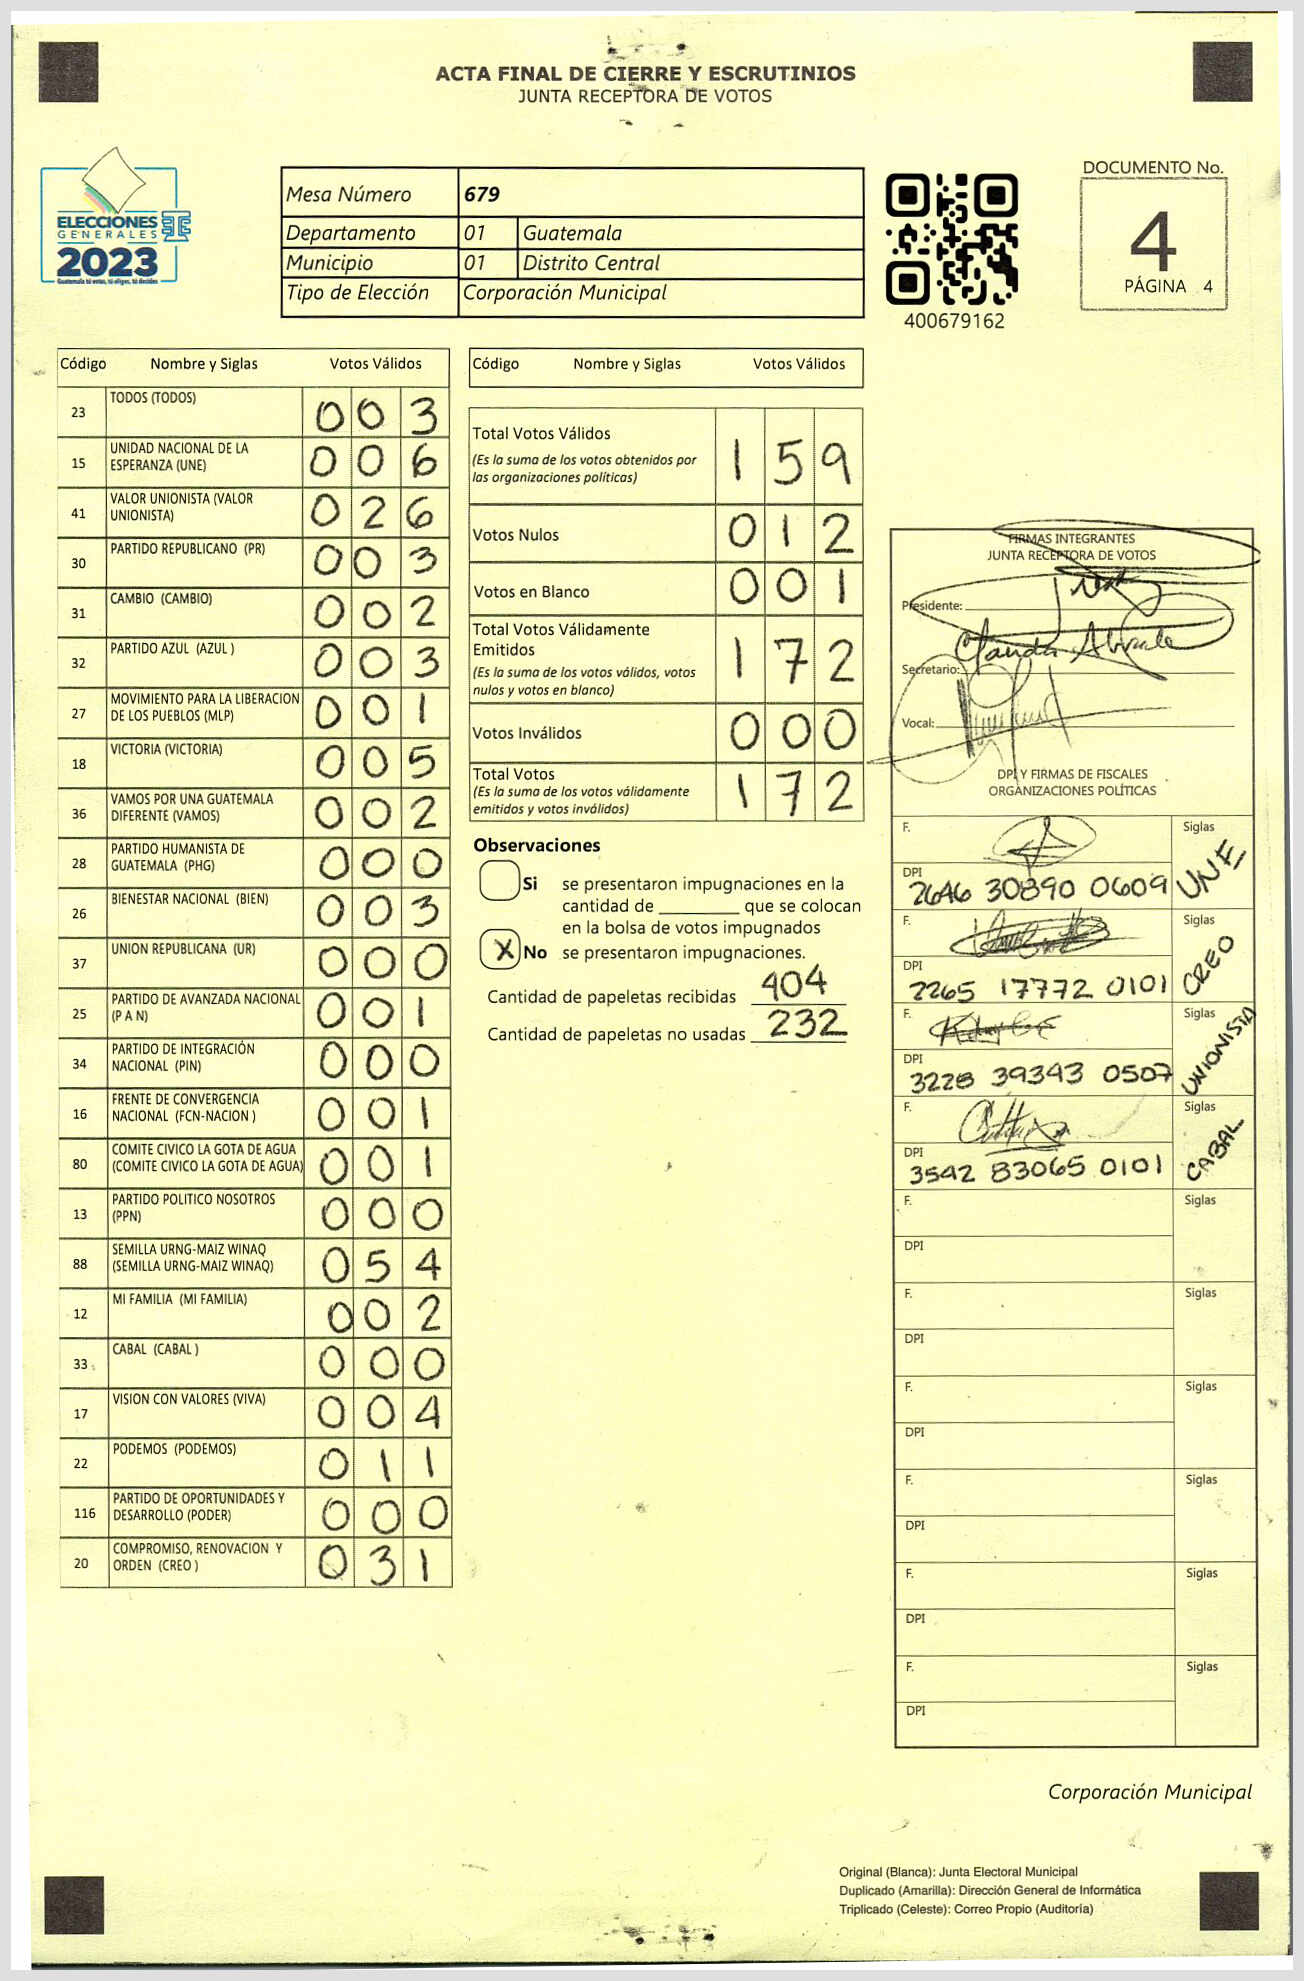 ACTA FINAL DE CIERRE Y ESCRUTINIOS
JUNTA RECEPTORA DE VOTOS
ELECCIONES
GENERALES
2023
Guatemala tú votas, tú eliges, tú decides
Mesa Número 679
Departamento 01 Guatemala
Municipio 01 Distrito Central
Tipo de Elección Corporación Municipal
400679162
DOCUMENTO No.
4
PÁGINA 4
Código Nombre y Siglas Votos Válidos
23 TODOS (TODOS) 0 0 3
15 UNIDAD NACIONAL DE LA
ESPERANZA (UNE) 0 0 6
41 VALOR UNIONISTA (VALOR
UNIONISTA) 0 2 6
30 PARTIDO REPUBLICANO (PR) 0 0 3
31 CAMBIO (CAMBIO) 0 0 2
32 PARTIDO AZUL (AZUL ) 0 0 3
27 MOVIMIENTO PARA LA LIBERACION
DE LOS PUEBLOS (MLP) 0 0 1
18 VICTORIA (VICTORIA) 0 0 5
36 VAMOS POR UNA GUATEMALA
DIFERENTE (VAMOS) 0 0 2
28 PARTIDO HUMANISTA DE
GUATEMALA (PHG) 0 0 0
26 BIENESTAR NACIONAL (BIEN) 0 0 3
37 UNION REPUBLICANA (UR) 0 0 0
25 PARTIDO DE AVANZADA NACIONAL
(P A N) 0 0 1
34 PARTIDO DE INTEGRACIÓN
NACIONAL (PIN) 0 0 0
16 FRENTE DE CONVERGENCIA
NACIONAL (FCN-NACION ) 0 0 1
80 COMITE CIVICO LA GOTA DE AGUA
(COMITE CIVICO LA GOTA DE AGUA) 0 0 1
13 PARTIDO POLITICO NOSOTROS
(PPN) 0 0 0
88 SEMILLA URNG-MAIZ WINAQ
(SEMILLA URNG-MAIZ WINAQ) 0 5 4
12 MI FAMILIA (MI FAMILIA) 0 0 2
33 CABAL (CABAL ) 0 0 0
17 VISION CON VALORES (VIVA) 0 0 4
22 PODEMOS (PODEMOS) 0 1 1
116 PARTIDO DE OPORTUNIDADES Y
DESARROLLO (PODER) 0 0 0
20 COMPROMISO, RENOVACION Y
ORDEN (CREO ) 0 3 1
Código Nombre y Siglas Votos Válidos
Total Votos Válidos
(Es la suma de los votos obtenidos por
las organizaciones políticas) 1 5 9
Votos Nulos 0 1 2
Votos en Blanco 0 0 1
Total Votos Válidamente
Emitidos
(Es la suma de los votos válidos, votos
nulos y votos en blanco) 1 7 2
Votos Inválidos 0 0 0
Total Votos
(Es la suma de los votos válidamente
emitidos y votos inválidos) 1 7 2
Observaciones
Si se presentaron impugnaciones en la
cantidad de ________ que se colocan
en la bolsa de votos impugnados
X No se presentaron impugnaciones.
Cantidad de papeletas recibidas 404
Cantidad de papeletas no usadas 232
FIRMAS INTEGRANTES
JUNTA RECEPTORA DE VOTOS
Presidente:
Secretario:
Vocal:
DPI Y FIRMAS DE FISCALES
ORGANIZACIONES POLÍTICAS
F. Siglas
DPI
2646 30890 0609 UNE
F. Siglas
DPI
2265 17772 0101 CREO
F. Siglas
DPI
3228 39343 0507 UNIONISTA
F. Siglas
DPI
3542 83065 0101 CABAL
F. Siglas
DPI
F. Siglas
DPI
F. Siglas
DPI
F. Siglas
DPI
F. Siglas
DPI
F. Siglas
DPI
Corporación Municipal
Original (Blanca): Junta Electoral Municipal
Duplicado (Amarilla): Dirección General de Informática
Triplicado (Celeste): Correo Propio (Auditoría)